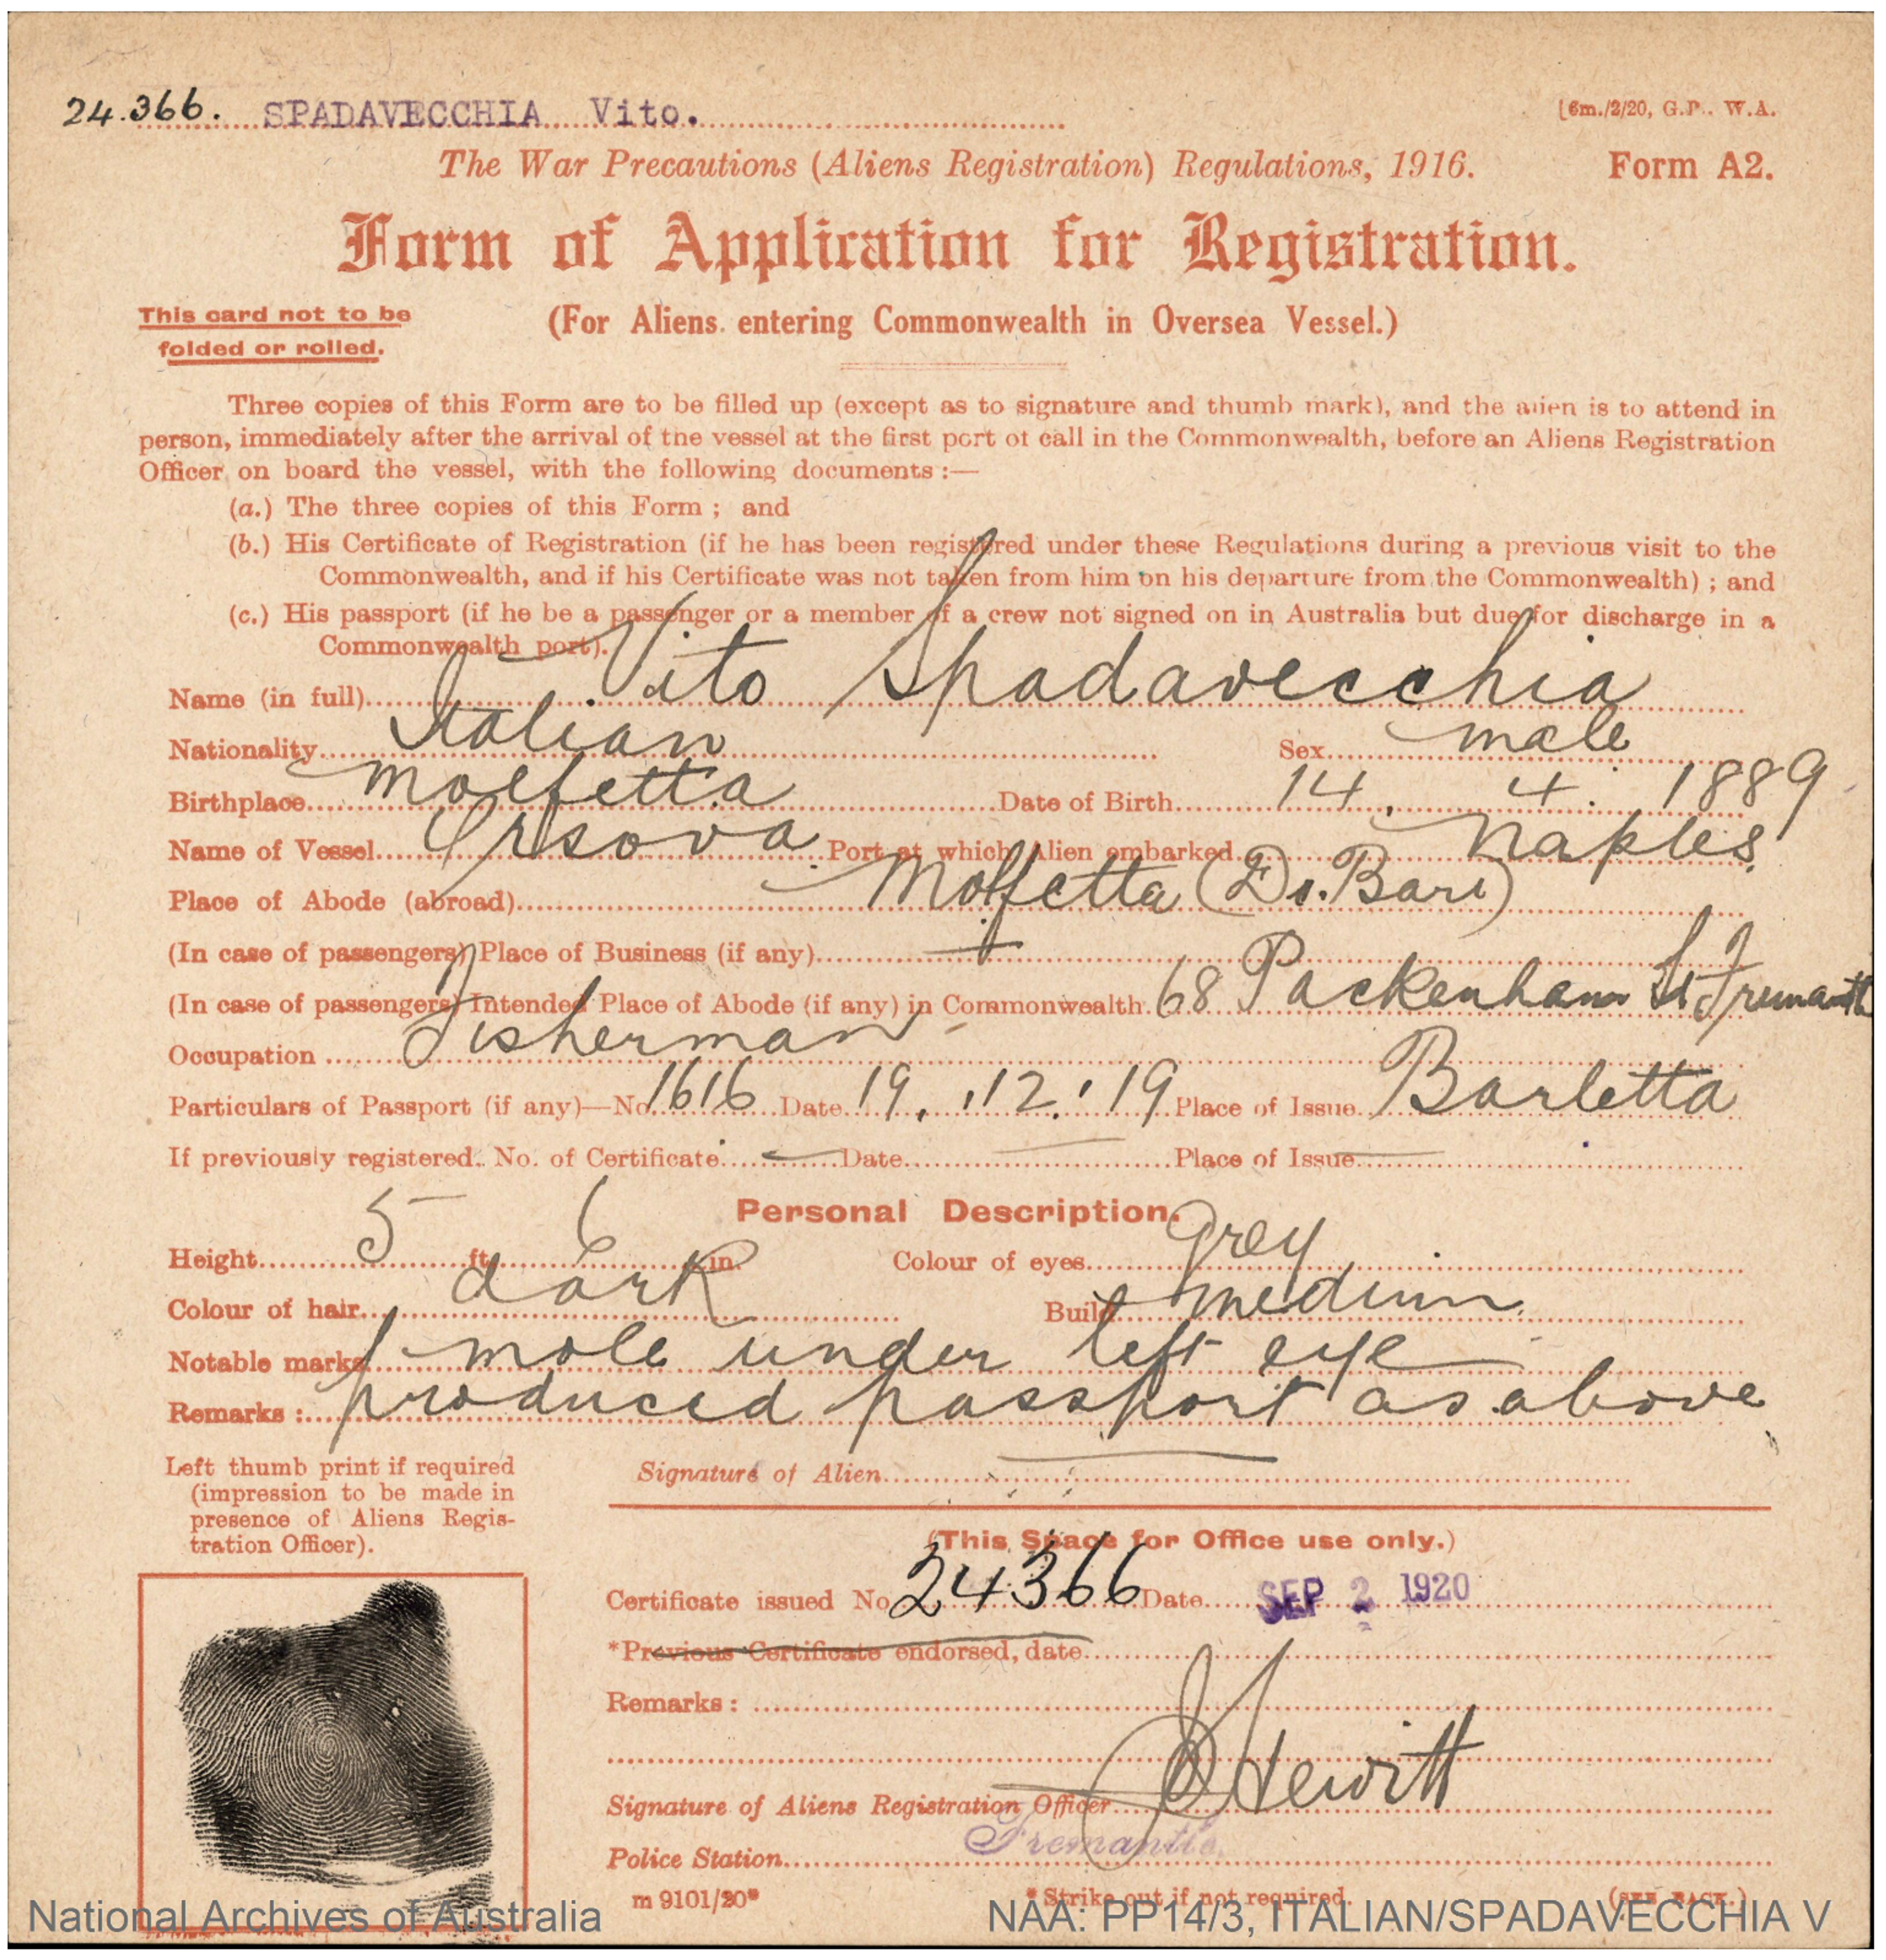 24.366. SPADAVECCHIA Vito.
[6m./2/20, G.P. W.A.
The War Precautions (Aliens Registration) Regulations, 1916. Form A2.
Form of Application for Registration.
This card not to be
folded or rolled.
(For Aliens entering Commonwealth in Oversea Vessel.)
Three copies of this Form are to be filled up (except as to signature and thumb mark), and the alien is to attend in
person, immediately after the arrival of the vessel at the first port of call in the Commonwealth, before an Aliens Registration
Officer on board the vessel, with the following documents :—
(a.) The three copies of this Form ; and
(b.) His Certificate of Registration (if he has been registered under these Regulations during a previous visit to the
Commonwealth, and if his Certificate was not taken from him on his departure from the Commonwealth) ; and
(c.) His passport (if he be a passenger or a member of a crew not signed on in Australia but due for discharge in a
Commonwealth port).
Name (in full) Vito Spadavecchia
Nationality Italian Sex male
Birthplace Molfetta Date of Birth 14. 4. 1889
Name of Vessel Orsova Port at which Alien embarked Naples
Place of Abode (abroad) Molfetta (Di. Bari)
(In case of passengers) Place of Business (if any)
(In case of passengers) Intended Place of Abode (if any) in Commonwealth 68 Packenham St Fremantle
Occupation Fisherman
Particulars of Passport (if any)—No. 1616 Date 19. 12. 19 Place of Issue Barletta
If previously registered. No. of Certificate Date Place of Issue
Personal Description.
Height 5 ft. 6 in. Colour of eyes Grey
Colour of hair dark Build medium
Notable marks mole under left eye
Remarks : produced passport as above
Left thumb print if required
(impression to be made in
presence of Aliens Regis-
tration Officer).
Signature of Alien
(This Space for Office use only.)
Certificate issued No. 24366 Date SEP 2 1920
*Previous Certificate endorsed, date
Remarks :
Signature of Aliens Registration Officer Hewitt
Police Station Fremantle.
m 9101/20* * Strike out if not required. (SEE BACK.)
National Archives of Australia NAA: PP14/3, ITALIAN/SPADAVECCHIA V